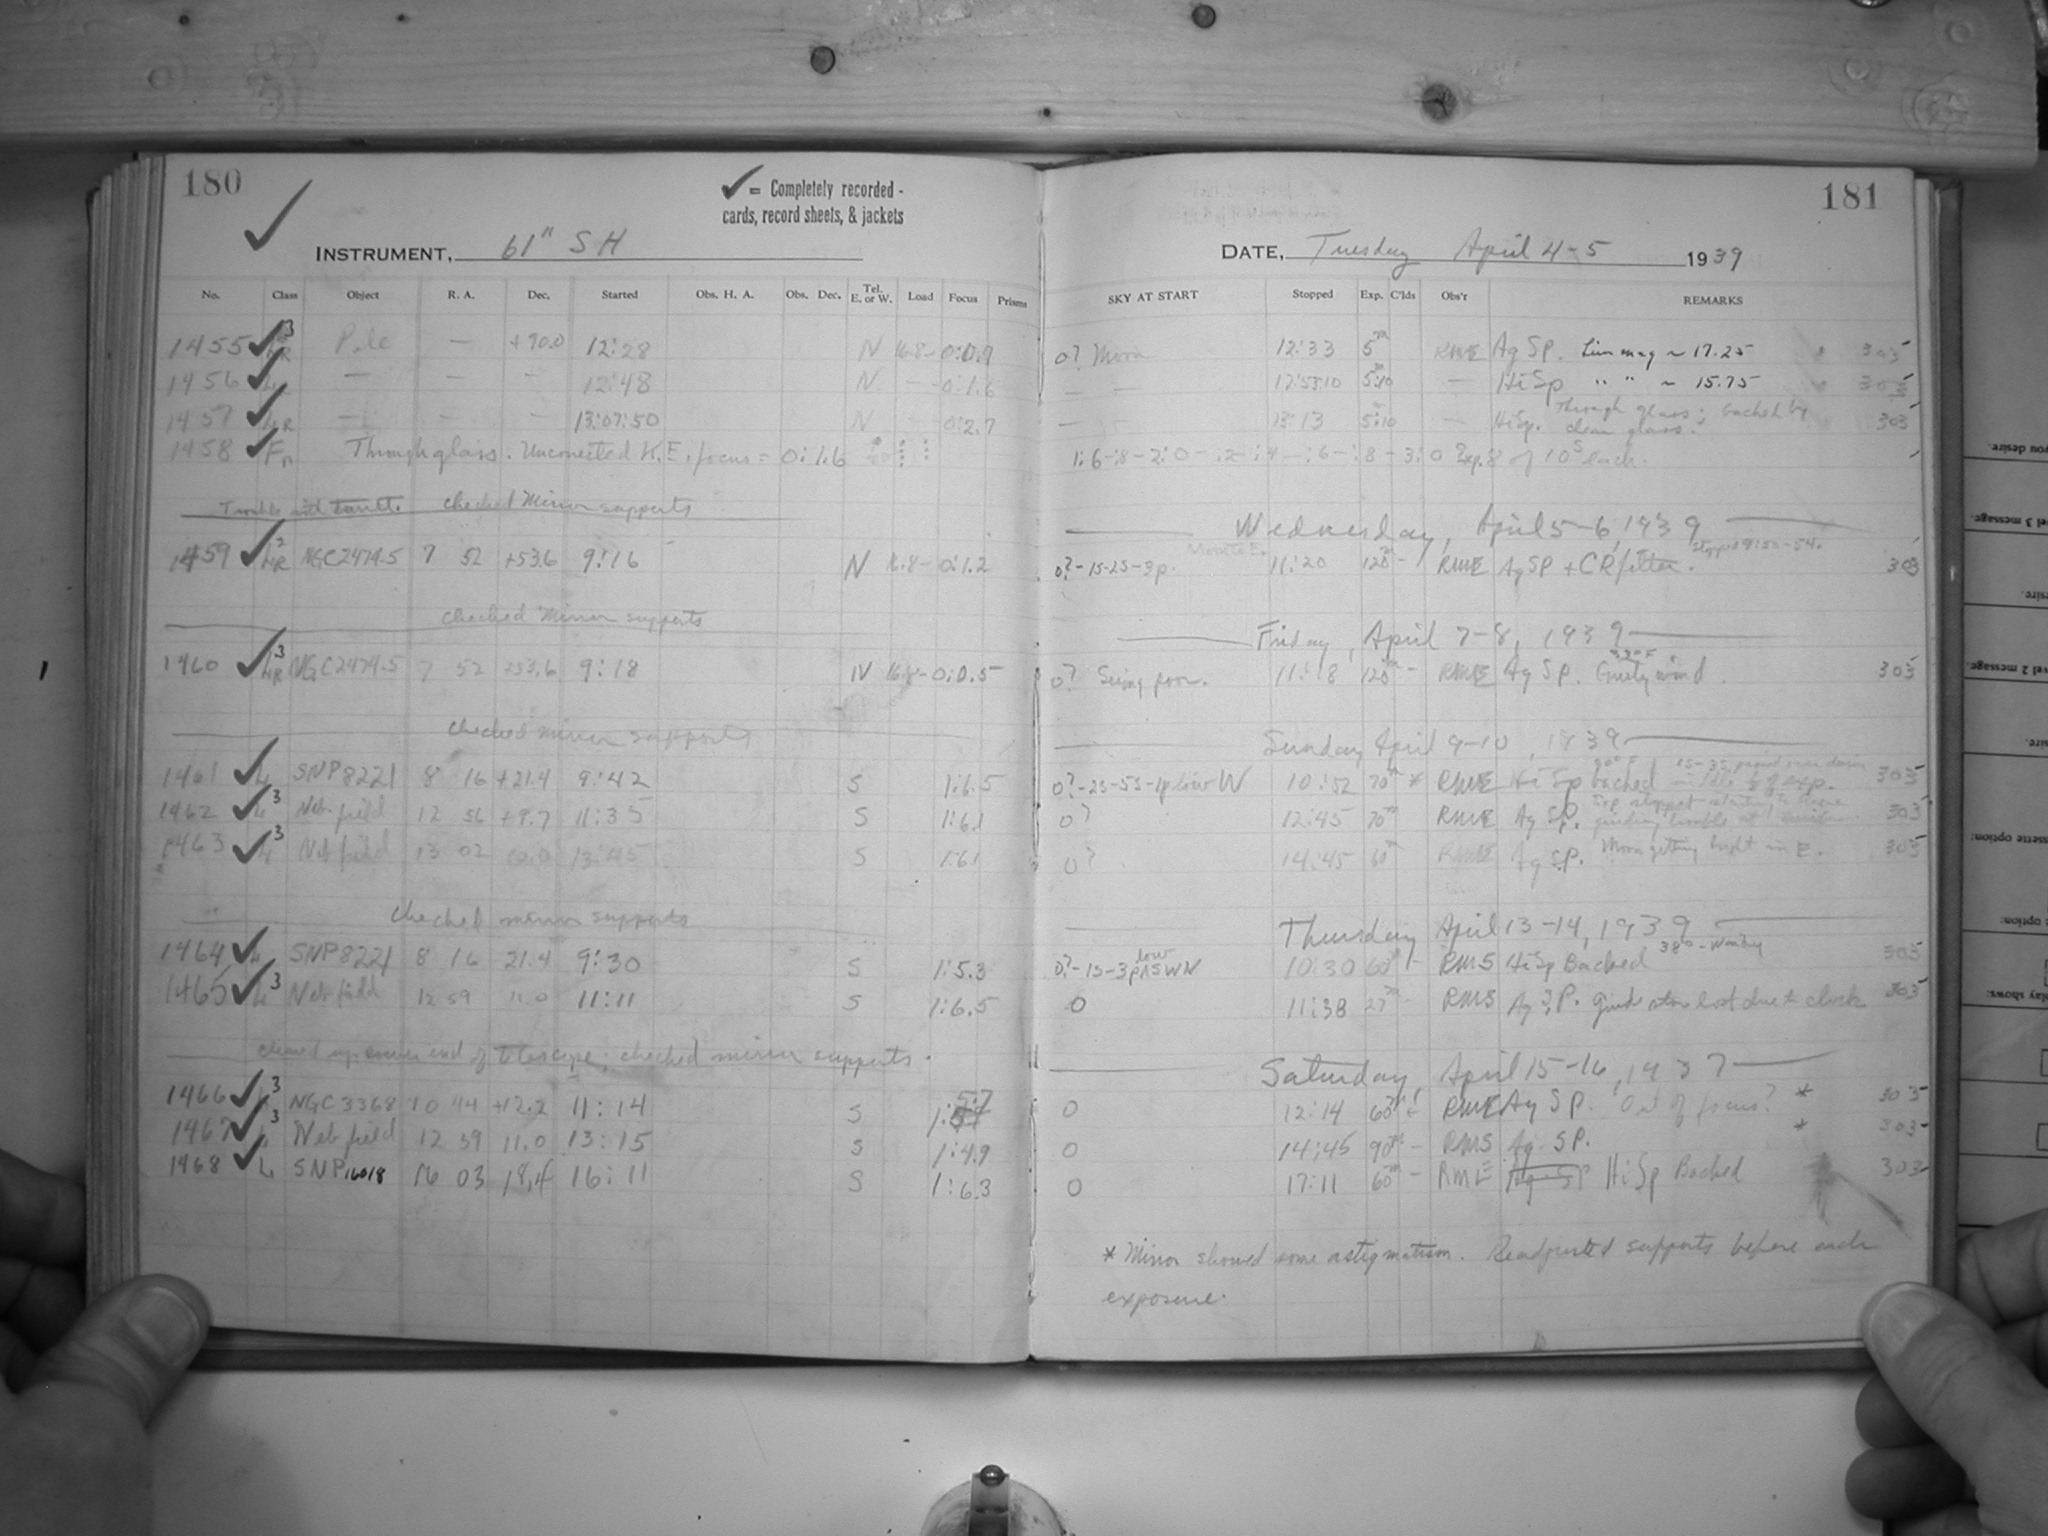 180
✓= Completely recorded -
cards, record sheets, & jackets
INSTRUMENT, 61" SH
No. Class Object R. A. Dec. Started Obs. H. A. Obs. Dec. Tel. E. or W. Load Focus Prisms
1455 Pole — +90.0 12:28 N 16.8- 0:0.9
1456 — — — 12:48 N — 0:1.6
1457 — — — 13:07:50 N 0:2.7
1458 Through glass. K.E. focus = 0:1.6
Trouble with checked Mirror supports
1459 NGC2474.5 7 52 +53.6 9:16 N 16.8- 0:1.2
checked Mirror supports
1460 NGC2474.5 7 52 +53.6 9:18 N 16.8- 0:0.5
checked mirror supports
1461 SNP8221 8 16 +21.4 9:42 S 1:6.5
1462 Neb. field 12 56 +9.7 11:35 S 1:6.1
1463 Neb field 13 02 13:45 S 1:6.1
checked mirror supports
1464 SNP8221 8 16 21.4 9:30 S 1:5.3
1465 Neb field 12 59 11.0 11:11 S 1:6.5
cleaned up end of telescope; checked mirror supports.
1466 NGC3368 10 44 +12.2 11:14 S 1:5.7
1467 Neb field 12 59 11.0 13:15 S 1:4.9
1468 SNP16018 16 03 18.4 16:11 S 1:6.3
181
DATE, Tuesday April 4-5 1939
SKY AT START Stopped Exp. C'lds Obs'r REMARKS
0? Moon 12:33 5m RME Ag SP. Lim mag ~ 17.25 303
— 12:53:10 5:10 — HiSp " " ~ 15.75 303
— 13:13 5:10 — HiSp. Through glass; backed by
clean glass. 303
1:6-:8-2:0-:2-:4-:6-:8-3:0 Exp. 8 of 10s each.
Wednesday, April 5-6, 1939
Moon to E. Stopped 9:50-54.
0?-1S-2S-3p. 11:20 120m - RME Ag SP + CR filter. 303
Friday, April 7-8, 1939
0? Seeing poor. 11:18 120m - RME Ag SP. Gusty wind 303
Sunday April 9-10, 1939
0?-2S-5S-1p low W 10:52 70m * RME HiSp backed 303
0? 12:45 70m RME Ag SP. guiding trouble at 303
0? 14:45 60m RME Ag SP. Moon getting bright in E. 303
Thursday April 13-14, 1939
0?-1S-3p low SWN 10:30 60m - RMS HiSp Backed 38° - Windy 303
0 11:38 27m RMS Ag SP. guide star lost due to clock 303
Saturday, April 15-16, 1937
0 12:14 60m - RME Ag SP. Out of focus? * 303
0 14:45 90m - RMS Ag SP. * 303
0 17:11 60m - RME Ag SP HiSp Backed 303
* Mirror showed some astigmatism. Readjusted supports before each
exposure.
you desire.
vel 3 message.
vel 2 message.
ssette option:
option:
play shows: